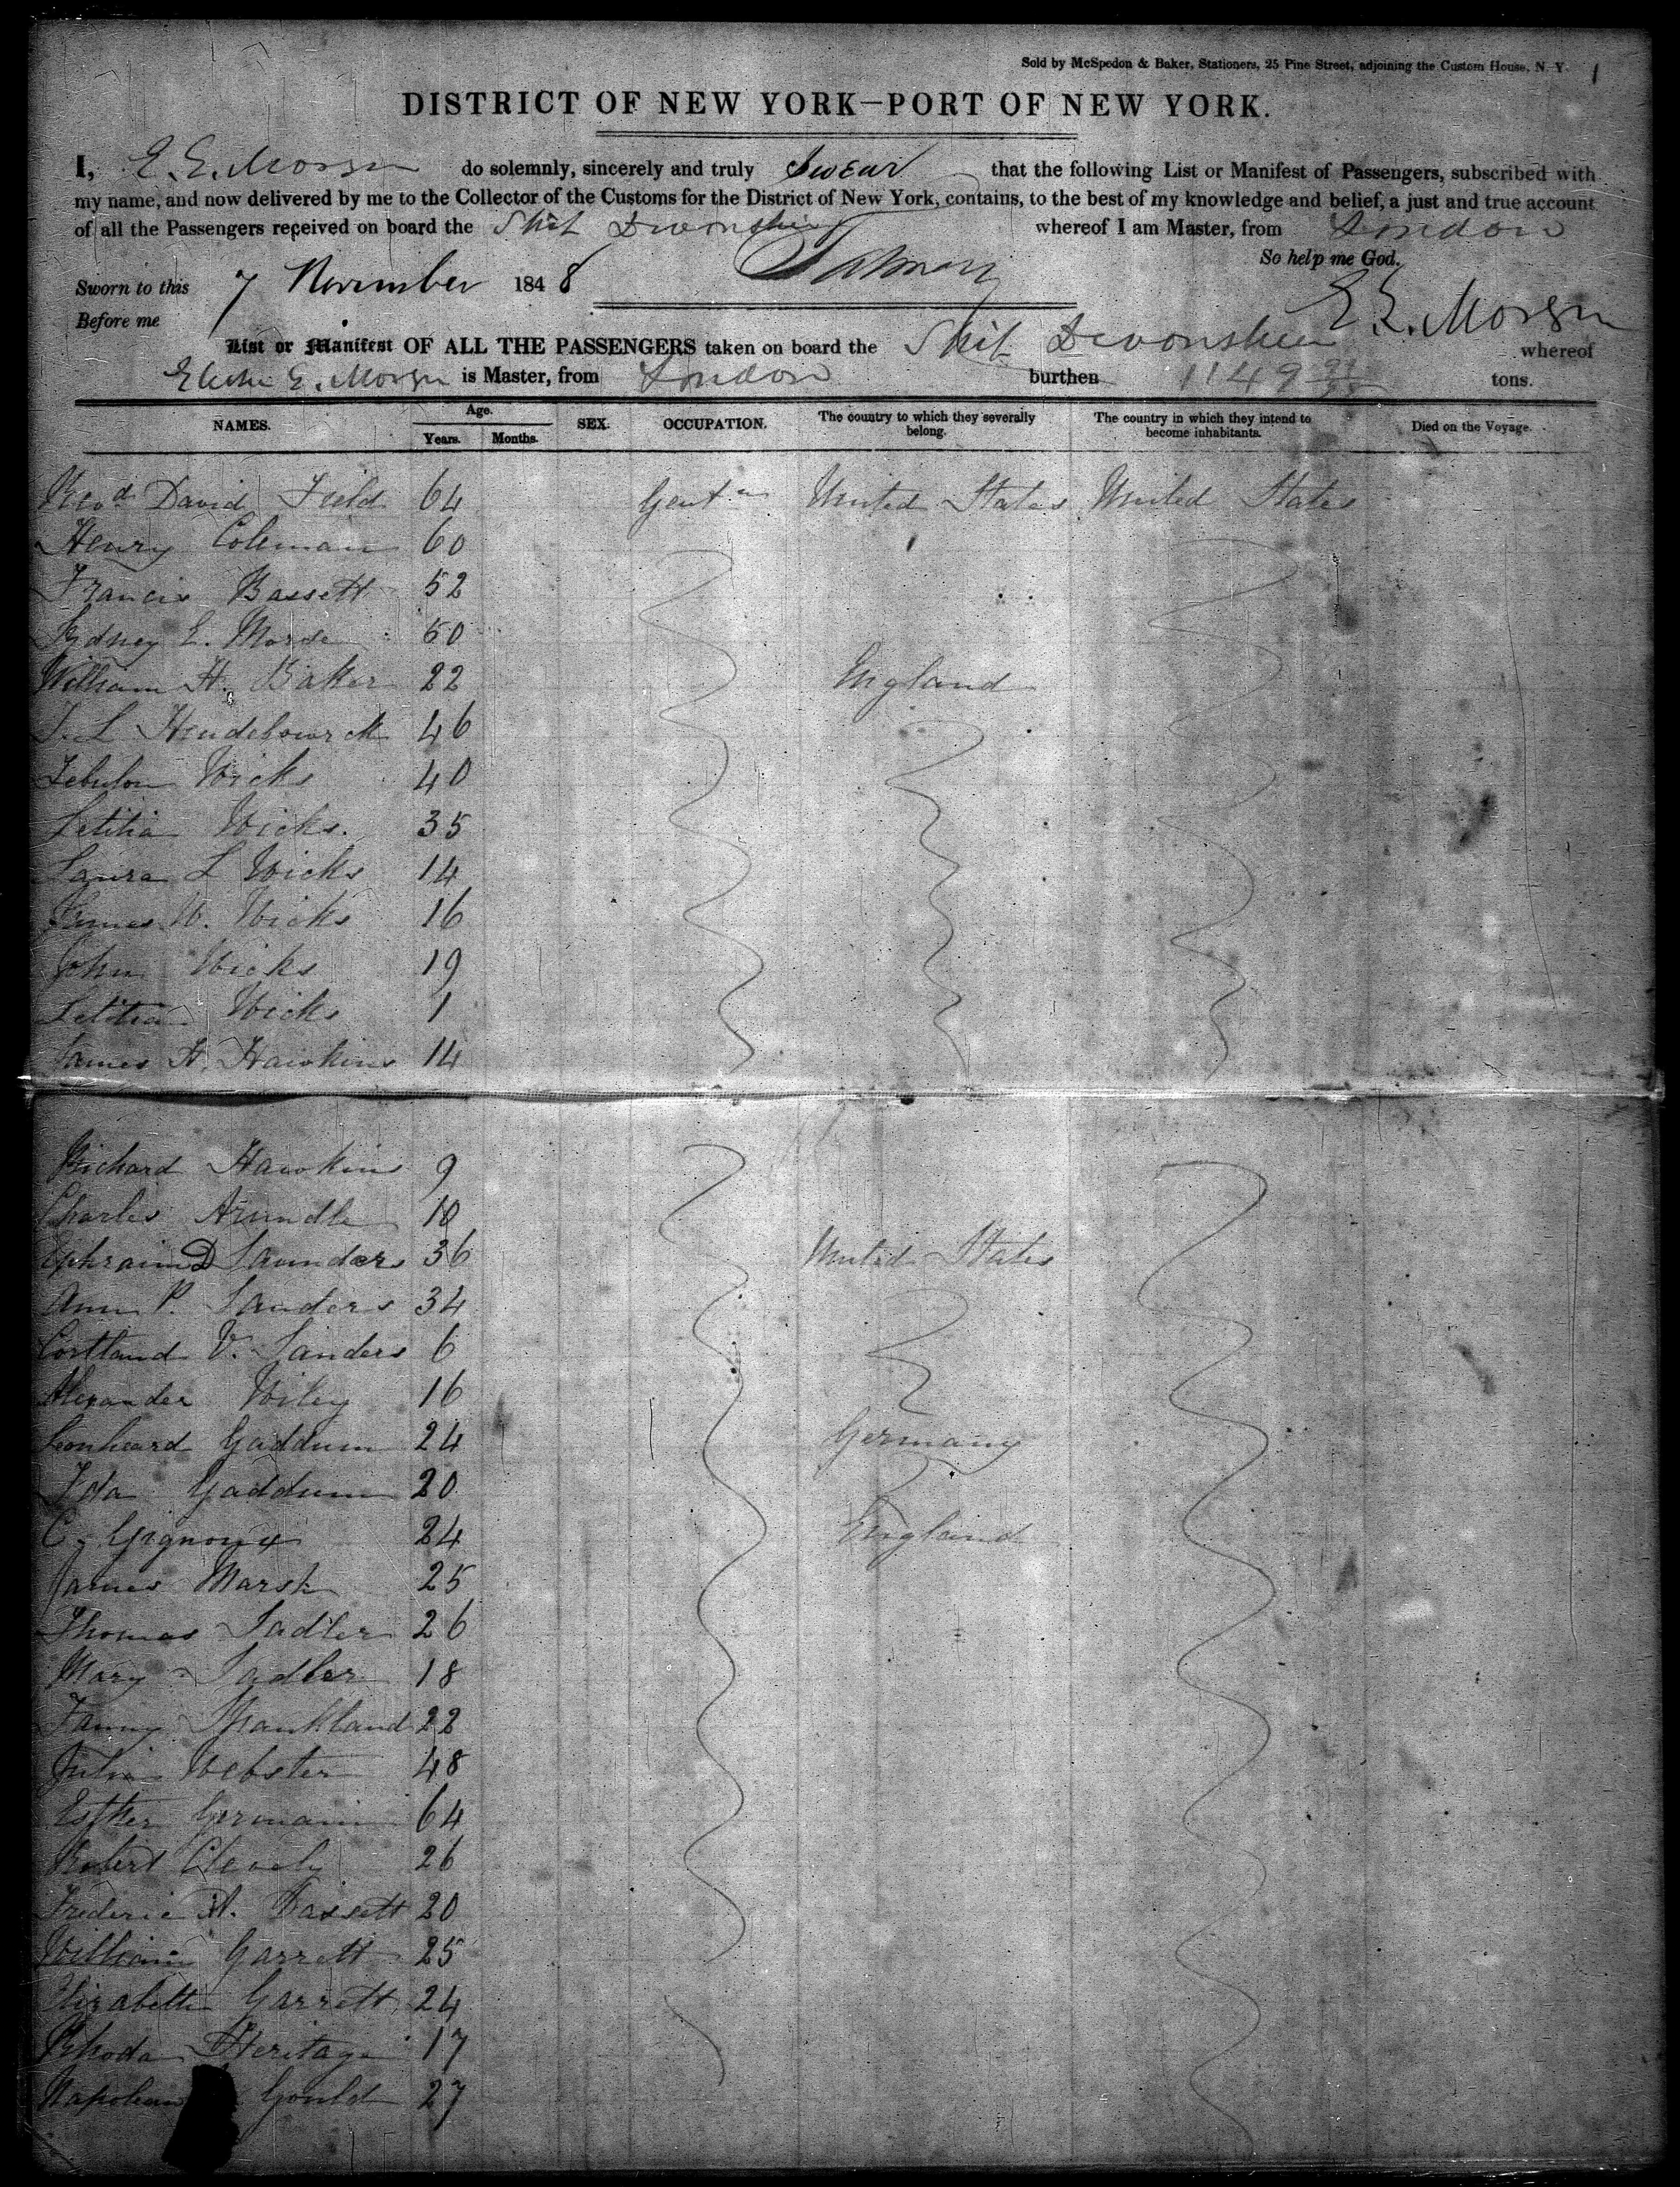 Sold by McSpedon & Baker, Stationers, 25 Pine Street, adjoining the Custom House, N. Y. 1
DISTRICT OF NEW YORK—PORT OF NEW YORK.
I, E. E. Morgan do solemnly, sincerely and truly Swear that the following List or Manifest of Passengers, subscribed with
my name, and now delivered by me to the Collector of the Customs for the District of New York, contains, to the best of my knowledge and belief, a just and true account
of all the Passengers received on board the Ship Devonshire whereof I am Master, from London
So help me God.
Sworn to this 7 November 1848
Before me E. E. Morgan
List or Manifest OF ALL THE PASSENGERS taken on board the Ship Devonshire whereof
E. Morgan is Master, from London burthen 1149 tons.
NAMES. Age. Years. Months. SEX. OCCUPATION. The country to which they severally belong. The country in which they intend to become inhabitants. Died on the Voyage.
Revd David Field 64 Gentn United States United States
Henry Coleman 60
Francis Bassett 52
Sydney E. Morse 50
William H. Baker 22 England
46
Zebulon Wicks 40
Letitia Wicks. 35
Laura L Wicks 14
James W. Wicks 16
John Wicks 19
Letitia Wicks 1
James H. Hawkins 14
Richard Hawkins 9
Charles Arundle 10
Ephraim D Saunders 36 United States
Ann P. Sanders 34
Cortland V. Sanders 6
Alexander Wiley 16
Leonheard Gaddum 24 Germany
Ida Gaddum 20
C. Gignoux 24 England
James Marsh 25
Thomas Sadler 26
Mary Sadler 18
Fanny 22
Julia Webster 48
Esther Germain 64
Robert Clevely 26
Frederic A. Bassett 20
William Garrett 25
Elizabeth Garrett 24
Rhoda Heritage 17
Napoleon Gould 27